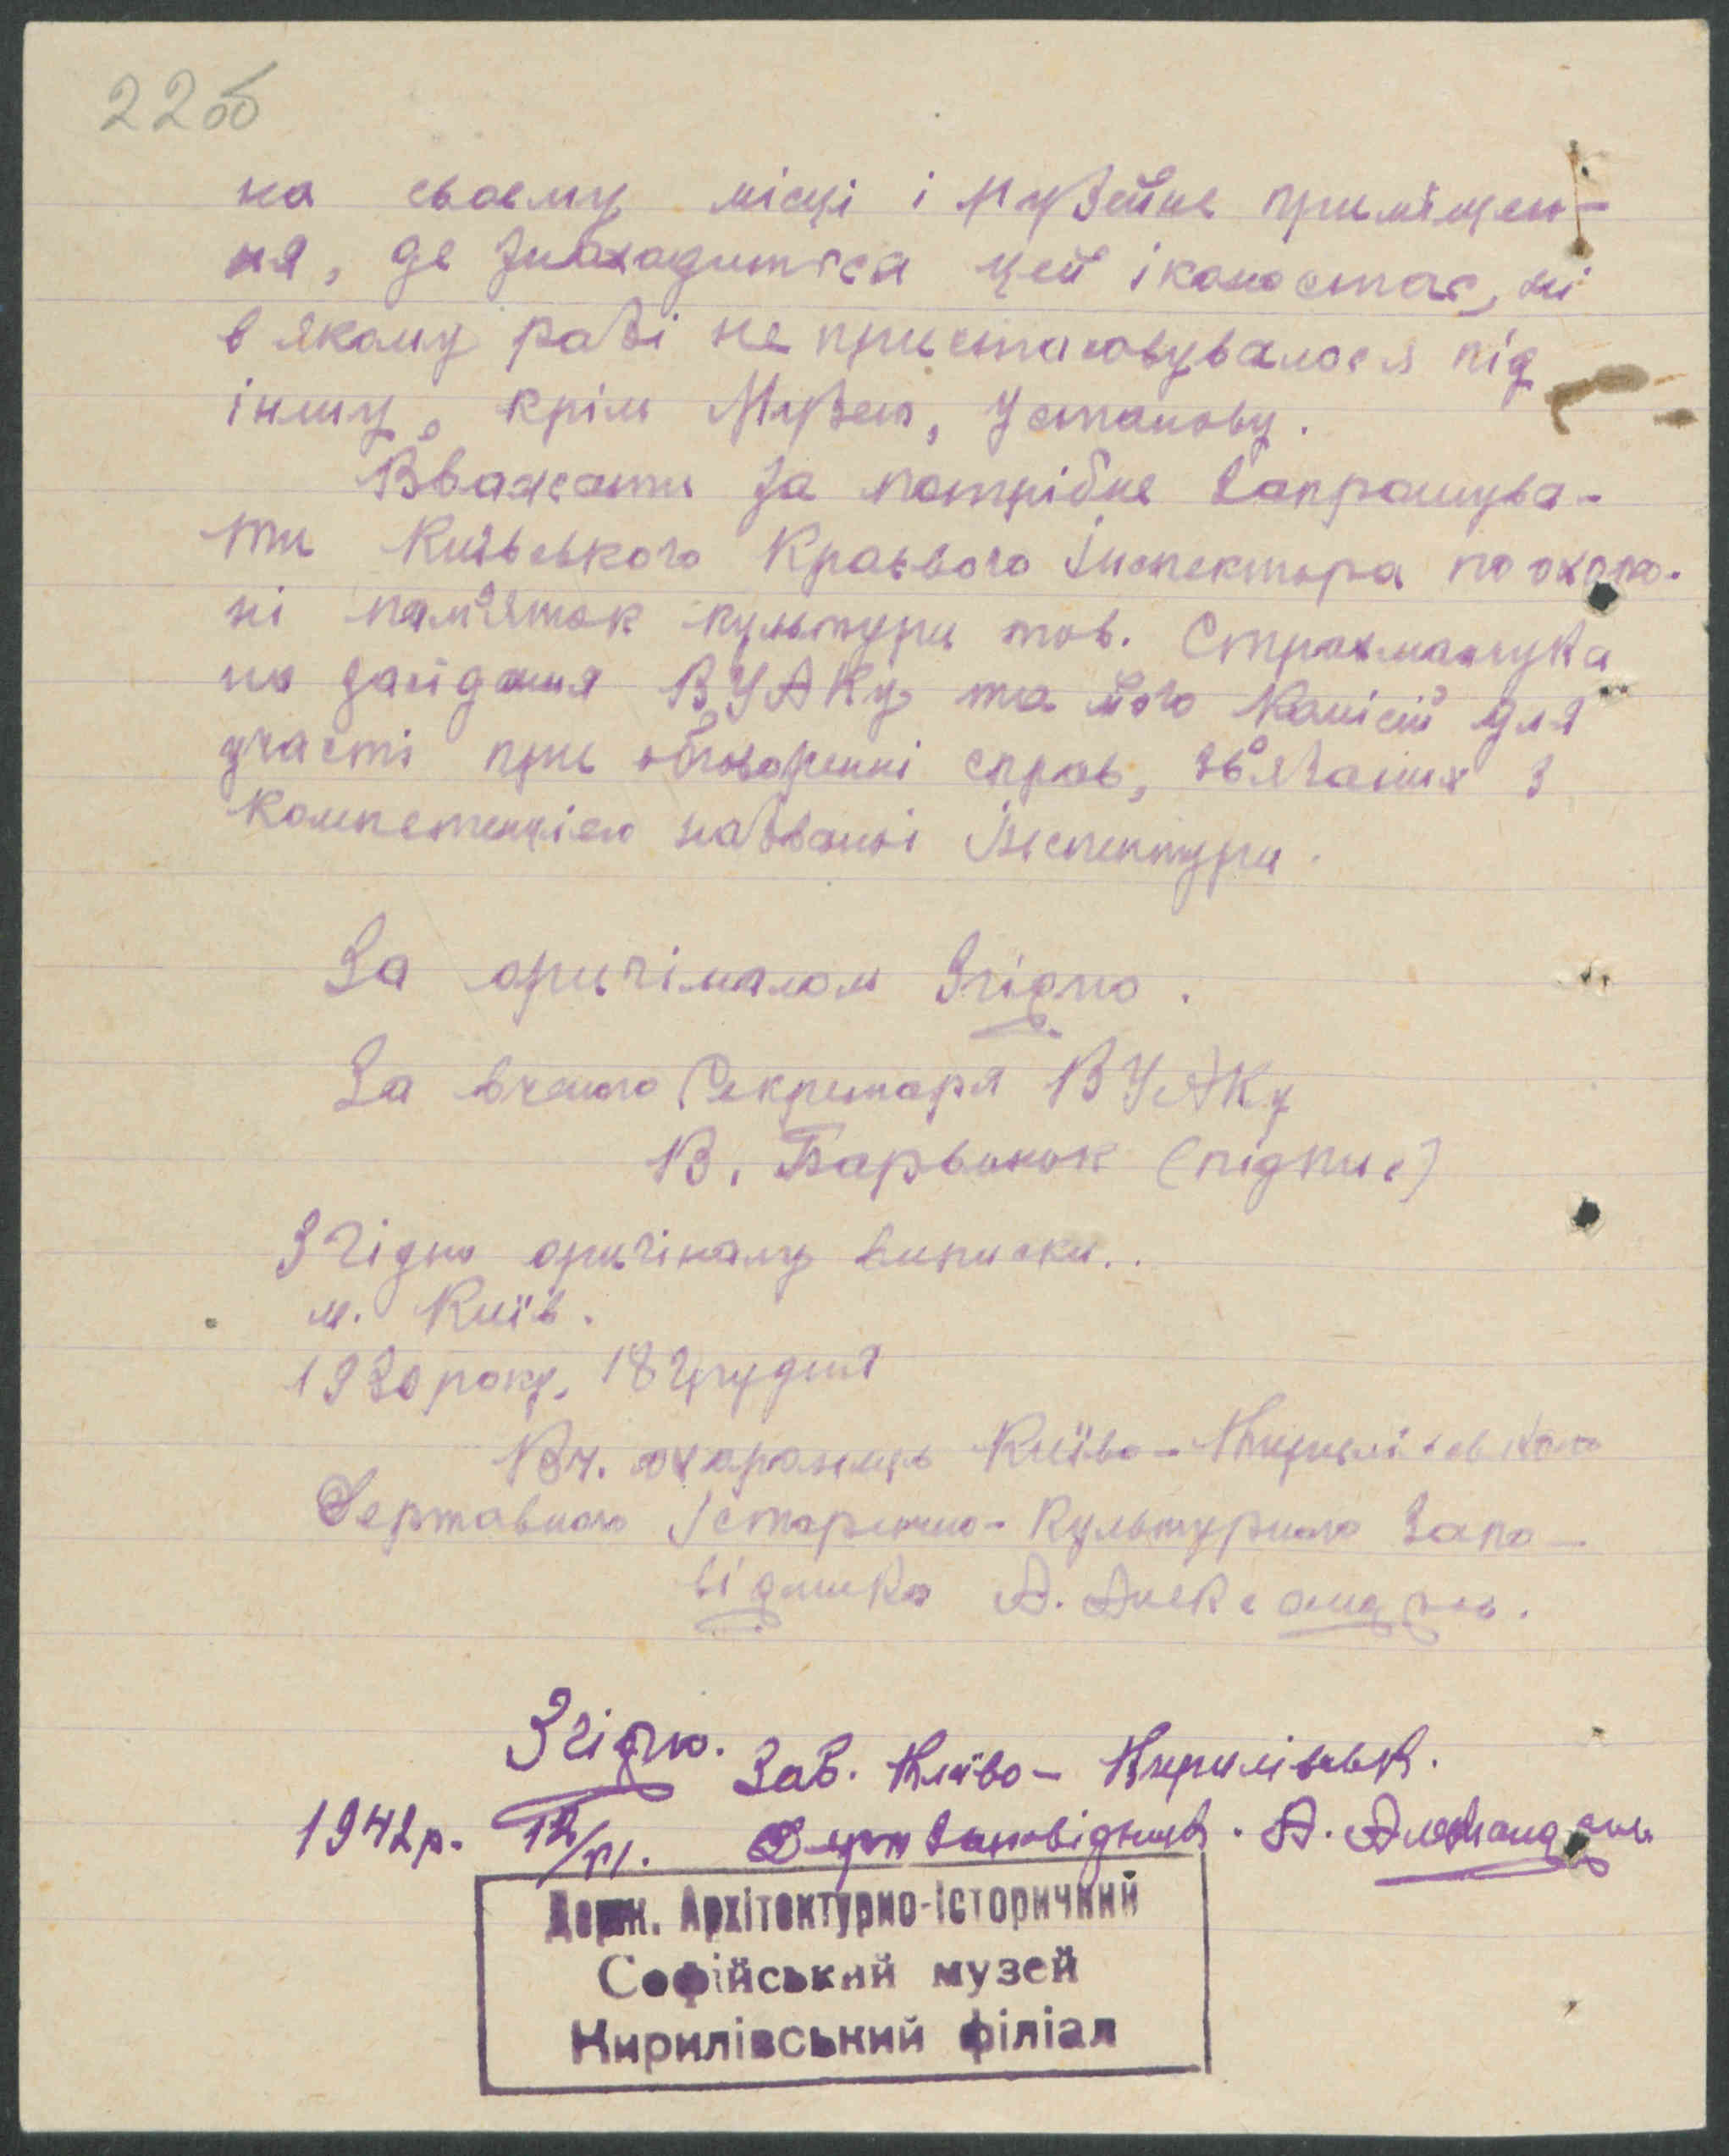 22 об
на своєму місці і Музейне приміщен-
ня, де знаходиться цей іконостас, ні
в якому разі не пристасовувалося під
іншу, крім Музею, Установу.
Вважати за потрібне запрошува-
ти Київського Краєвого Інспектора по охоро-
ні пам'яток культури тов.
на засідання ВУАКу та його Комісій для
участі при обговоренні справ, зв'язаних з
компетенцією названої Інспектури.
За оригіналом Згідно.
За вченого Секретаря ВУАКу
В. Барвінок (підпис)
Згідно оригіналу виписки..
м. Київ.
1930 року, 18 Грудня
Вч. охоронець Київо-Кирилівського
Державного Історично-Культурного Запо-
відника А. Александров.
Згідно. Зав. Київо-Кирилівськ.
1942 р. 12/VI. Держ Заповідник. А. Александров
Держ. Архітектурно-Історичний
Софійський музей
Кирилівський філіал